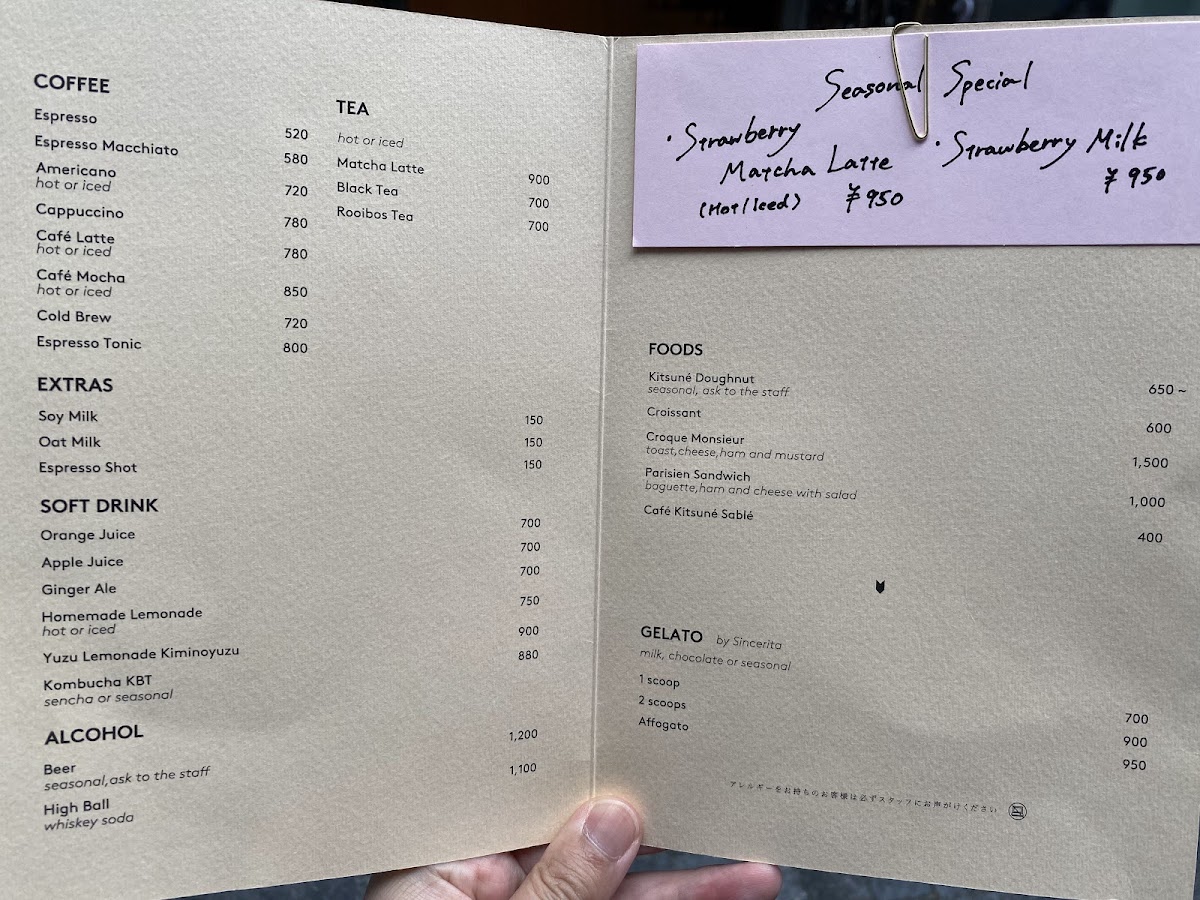 COFFEE
Espresso 520
Espresso Macchiato 580
Americano 720
hot or iced
Cappuccino 780
Café Latte 780
hot or iced
Café Mocha 850
hot or iced
Cold Brew 720
Espresso Tonic 800
TEA
hot or iced
Matcha Latte 900
Black Tea 700
Rooibos Tea 700
EXTRAS
Soy Milk 150
Oat Milk 150
Espresso Shot 150
SOFT DRINK
Orange Juice 700
Apple Juice 700
Ginger Ale 700
Homemade Lemonade 750
hot or iced
Yuzu Lemonade Kiminoyuzu 900
Kombucha KBT 880
sencha or seasonal
ALCOHOL
Beer 1,200
seasonal,ask to the staff
High Ball 1,100
whiskey soda
Seasonal Special
・Strawberry
Matcha Latte
(Hot/Iced) ¥950
・Strawberry Milk
¥950
FOODS
Kitsuné Doughnut 650 ~
seasonal, ask to the staff
Croissant 600
Croque Monsieur 1,500
toast,cheese,ham and mustard
Parisien Sandwich 1,000
baguette,ham and cheese with salad
Café Kitsuné Sablé 400
GELATO by Sincerita
milk, chocolate or seasonal
1 scoop 700
2 scoops 900
Affogato 950
アレルギーをお持ちのお客様は必ずスタッフにお声がけください